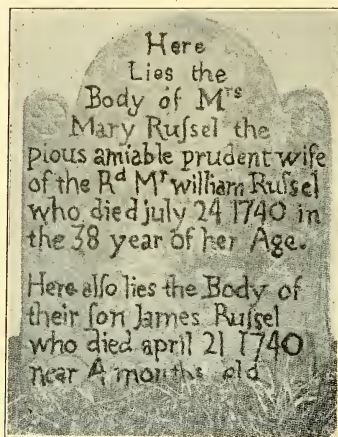 Here
Lies the
Body of Mrs
Mary Ruſsel the
pious amiable prudent wife
of the Rd Mr william Ruſsel
who died july 24 1740 in
the 38 year of her Age.
Here alſo lies the Body of
their ſon James Ruſsel
who died april 21 1740
near 4 months old